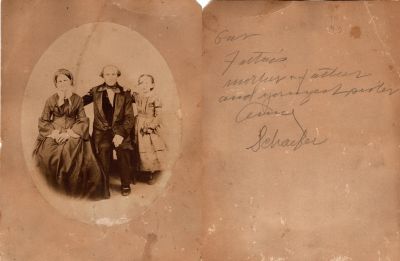 Our
Father's
mother & father
and youngest sister
Anna
Schaefer